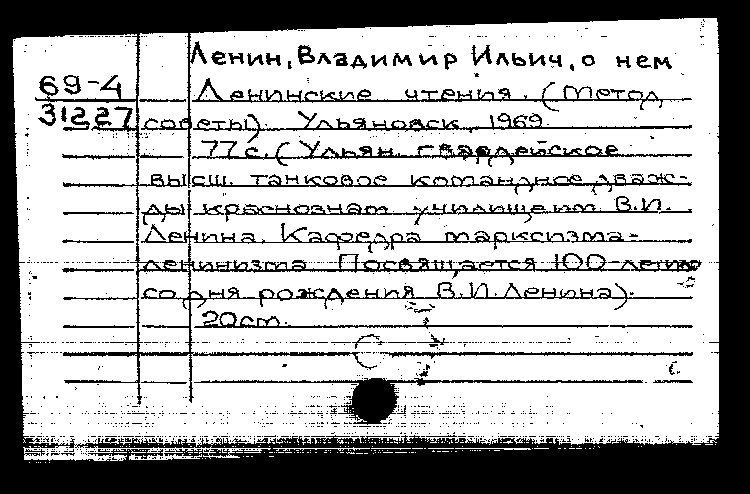 Ленин, Владимир Ильич, о нем
69-4
Ленинские чтения. (Метод.
31227
советы). Ульяновск, 1969.
77 с. (Ульян. гвардейское
высш. танковое командное дваж-
ды краснознам. училище им. В.И.
Ленина. Кафедра марксизма-
ленинизма. Посвящается 100-летию
со дня рождения В.И. Ленина).
20 см.